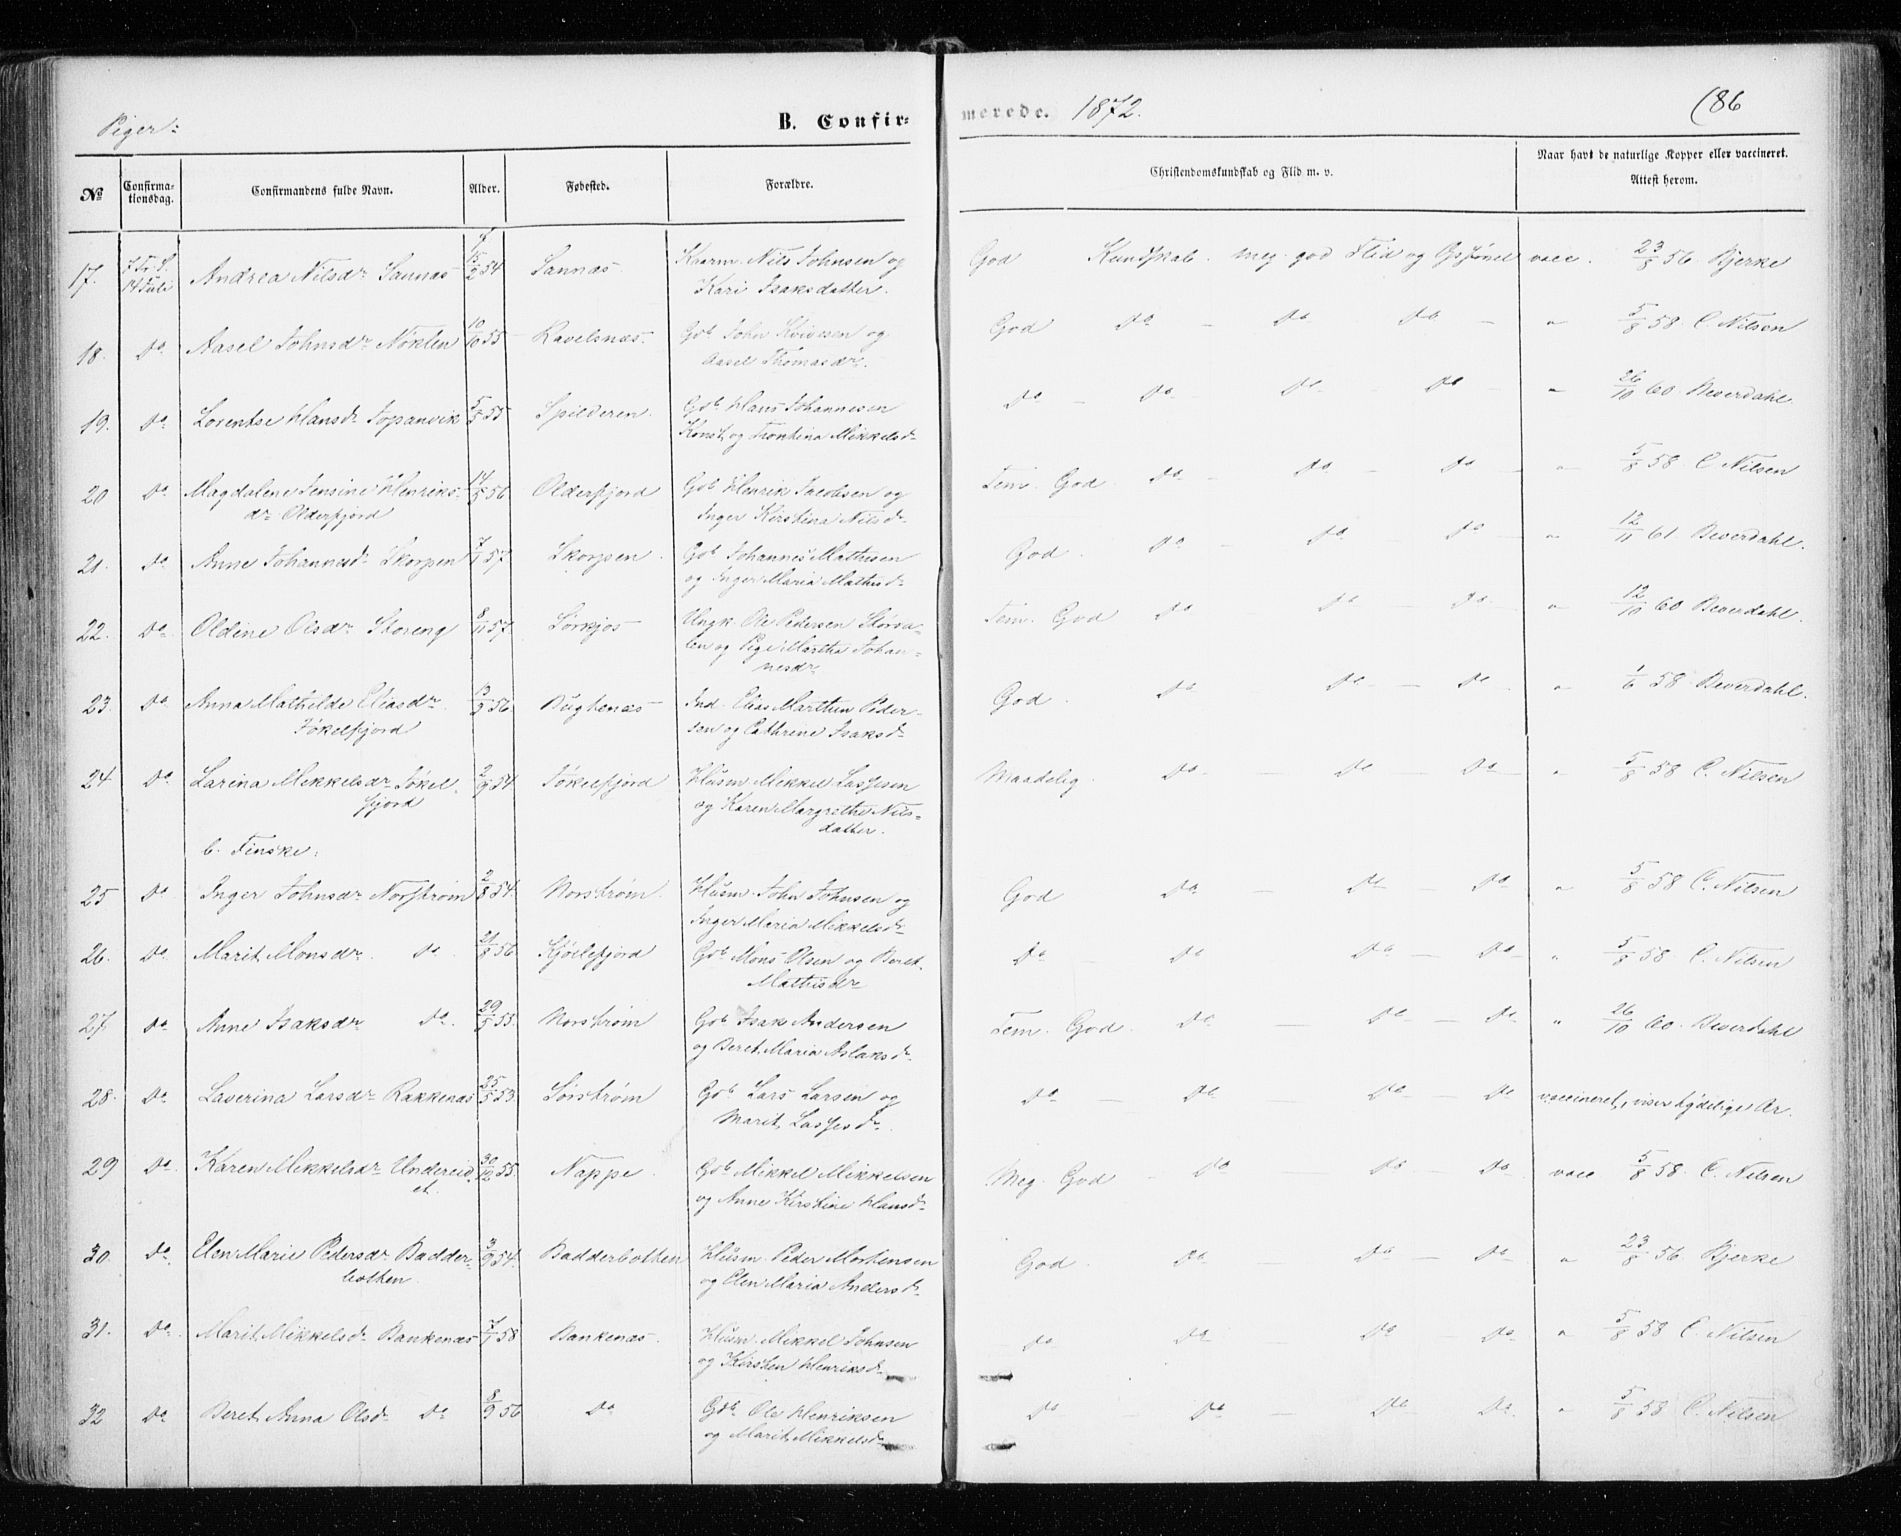 Piger:
B. Confirmerede. 1872.
186
№
Confirmationsdag.
Confirmandens fulde Navn.
Alder.
Fødested.
Forældre.
Christendomskundskab og Flid m. v.
Naar havt de naturlige Kopper eller vaccineret. Attest herom.
17. 7 Tr. S. 14 Juli Andrea Nilsdr Sannæs 15/2 54 Sannæs. Nils Johnsen og God Kundskab. meg. god Flid og vacc. 23/8 56. Bjerke
Kari Isaksdatter.
18. Do Aasel Johnsdr Nøklen 10/10 55 Ravelsnæs. Gdb John Kviven og God Do — Do Do — " 5/8 58 C. Nilsen
Aasel Thomasdr.
19. Do Lorentse Hansdr Sopanvik 5/5 55 Spilderen. Gdb Hans Johannesen Do — Do Do — Do — " 26/10 60. Beverdahl.
og Trontina Mikkelsdr
20 Do Magdalene Jensine Henriks- 14/5 56 Olderfjord Gdb Henrik Jacobsen og Tem. God. Do — Do — Do — " 5/8 58. C Nilsen
dr Olderfjord Inger Kirstina Nilsdr
21. Do Anne Johannesdr Skorpen 7/1 57. Skorpen. Gdb Johannes Mathisen God. Do — Do — Do — " 12/11 61. Beverdahl.
og Inger Maria Mathisdr
22. Do. Oldine Olsdr Storeng 8/11 57. Sørkjos Ungk. Ole Pedersen Storsa- Tem. God Do — Do — Do. — " 12/10 60 Beverdahl.
len og Pige Martha Johan-
nesdr
23 Do Anna Mathilde Eliasdr 13/9 56 Bugtenæs Ind. Elias Marthin Peder- God. Do — Do — Do. " 1/6 58. Beverdahl.
Jøkelfjord sen og Cathrine Isaksdr
24 Do Larina Mikkelsdr Jøkel- 2/9 54 Jøkelfjord Husm Mikkel Lassesen Maadelig. Do — Do — Do — " 5/8 58 C. Nilsen
fjord og Karen Margrethe Nils-
datter.
b. Finske:
25 Do Inger Johnsdr Norstrøm 2/8 54. Norstrøm. Husm. John Johnsen og God Do — Do Do " 5/8 58 C. Nilsen
Inger Maria Mikkelsdr
26. Do. Marit Monsdr. Do. 21/8 56 Kjølefjord Gdb. Mons Olsen og Beret Do — Do — Do — Do " 5/8 58. C. Nilsen
Mathisdr
27 Do Anne Isaksdr Do. 29/5 55. Norstrøm Gdb Isak Andersen Tem. God. Do — Do — Do " 26/10 60. Beverdahl
og Beret Maria Aslaksdr.
28. Do Laverina Larsdr Rakkenæs 25/5 53 Sørstrøm Gdb Lars Larsen og Do — Do — Do — Do vaccineret, viser tydelige Ar.
Marit Lassesdr.
29 Do. Karen Mikkelsdr Undereid- 30/12 55. Nappe. Gdb Mikkel Mikkelsen Meg. God — Do Do — Do vacc 5/8 58. C. Nilsen
et. og Anne Kirstine Hansdr
30. Do. Elen Marie Pedersdr Badder- 3/9 54. Badderbotten Husm. Peder Mortensen God. Do — Do — Do " 23/8 56 Bjerke
botten. og Elen Maria Andersdr
31. Do. Marit Mikkelsdr Bankenæs 7/1 58 Bankenæs. Husm. Mikkel Johnsen Do Do Do Do " 5/8 58 C. Nilsen
og Kirsten Henriksdr
32 Do Beret Anna Olsdr Do 8/9 56 Do Gdb. Ole Henriksen Do — Do — Do Do. " 5/8 58 C. Nilsen
og Marit Mikkelsdr